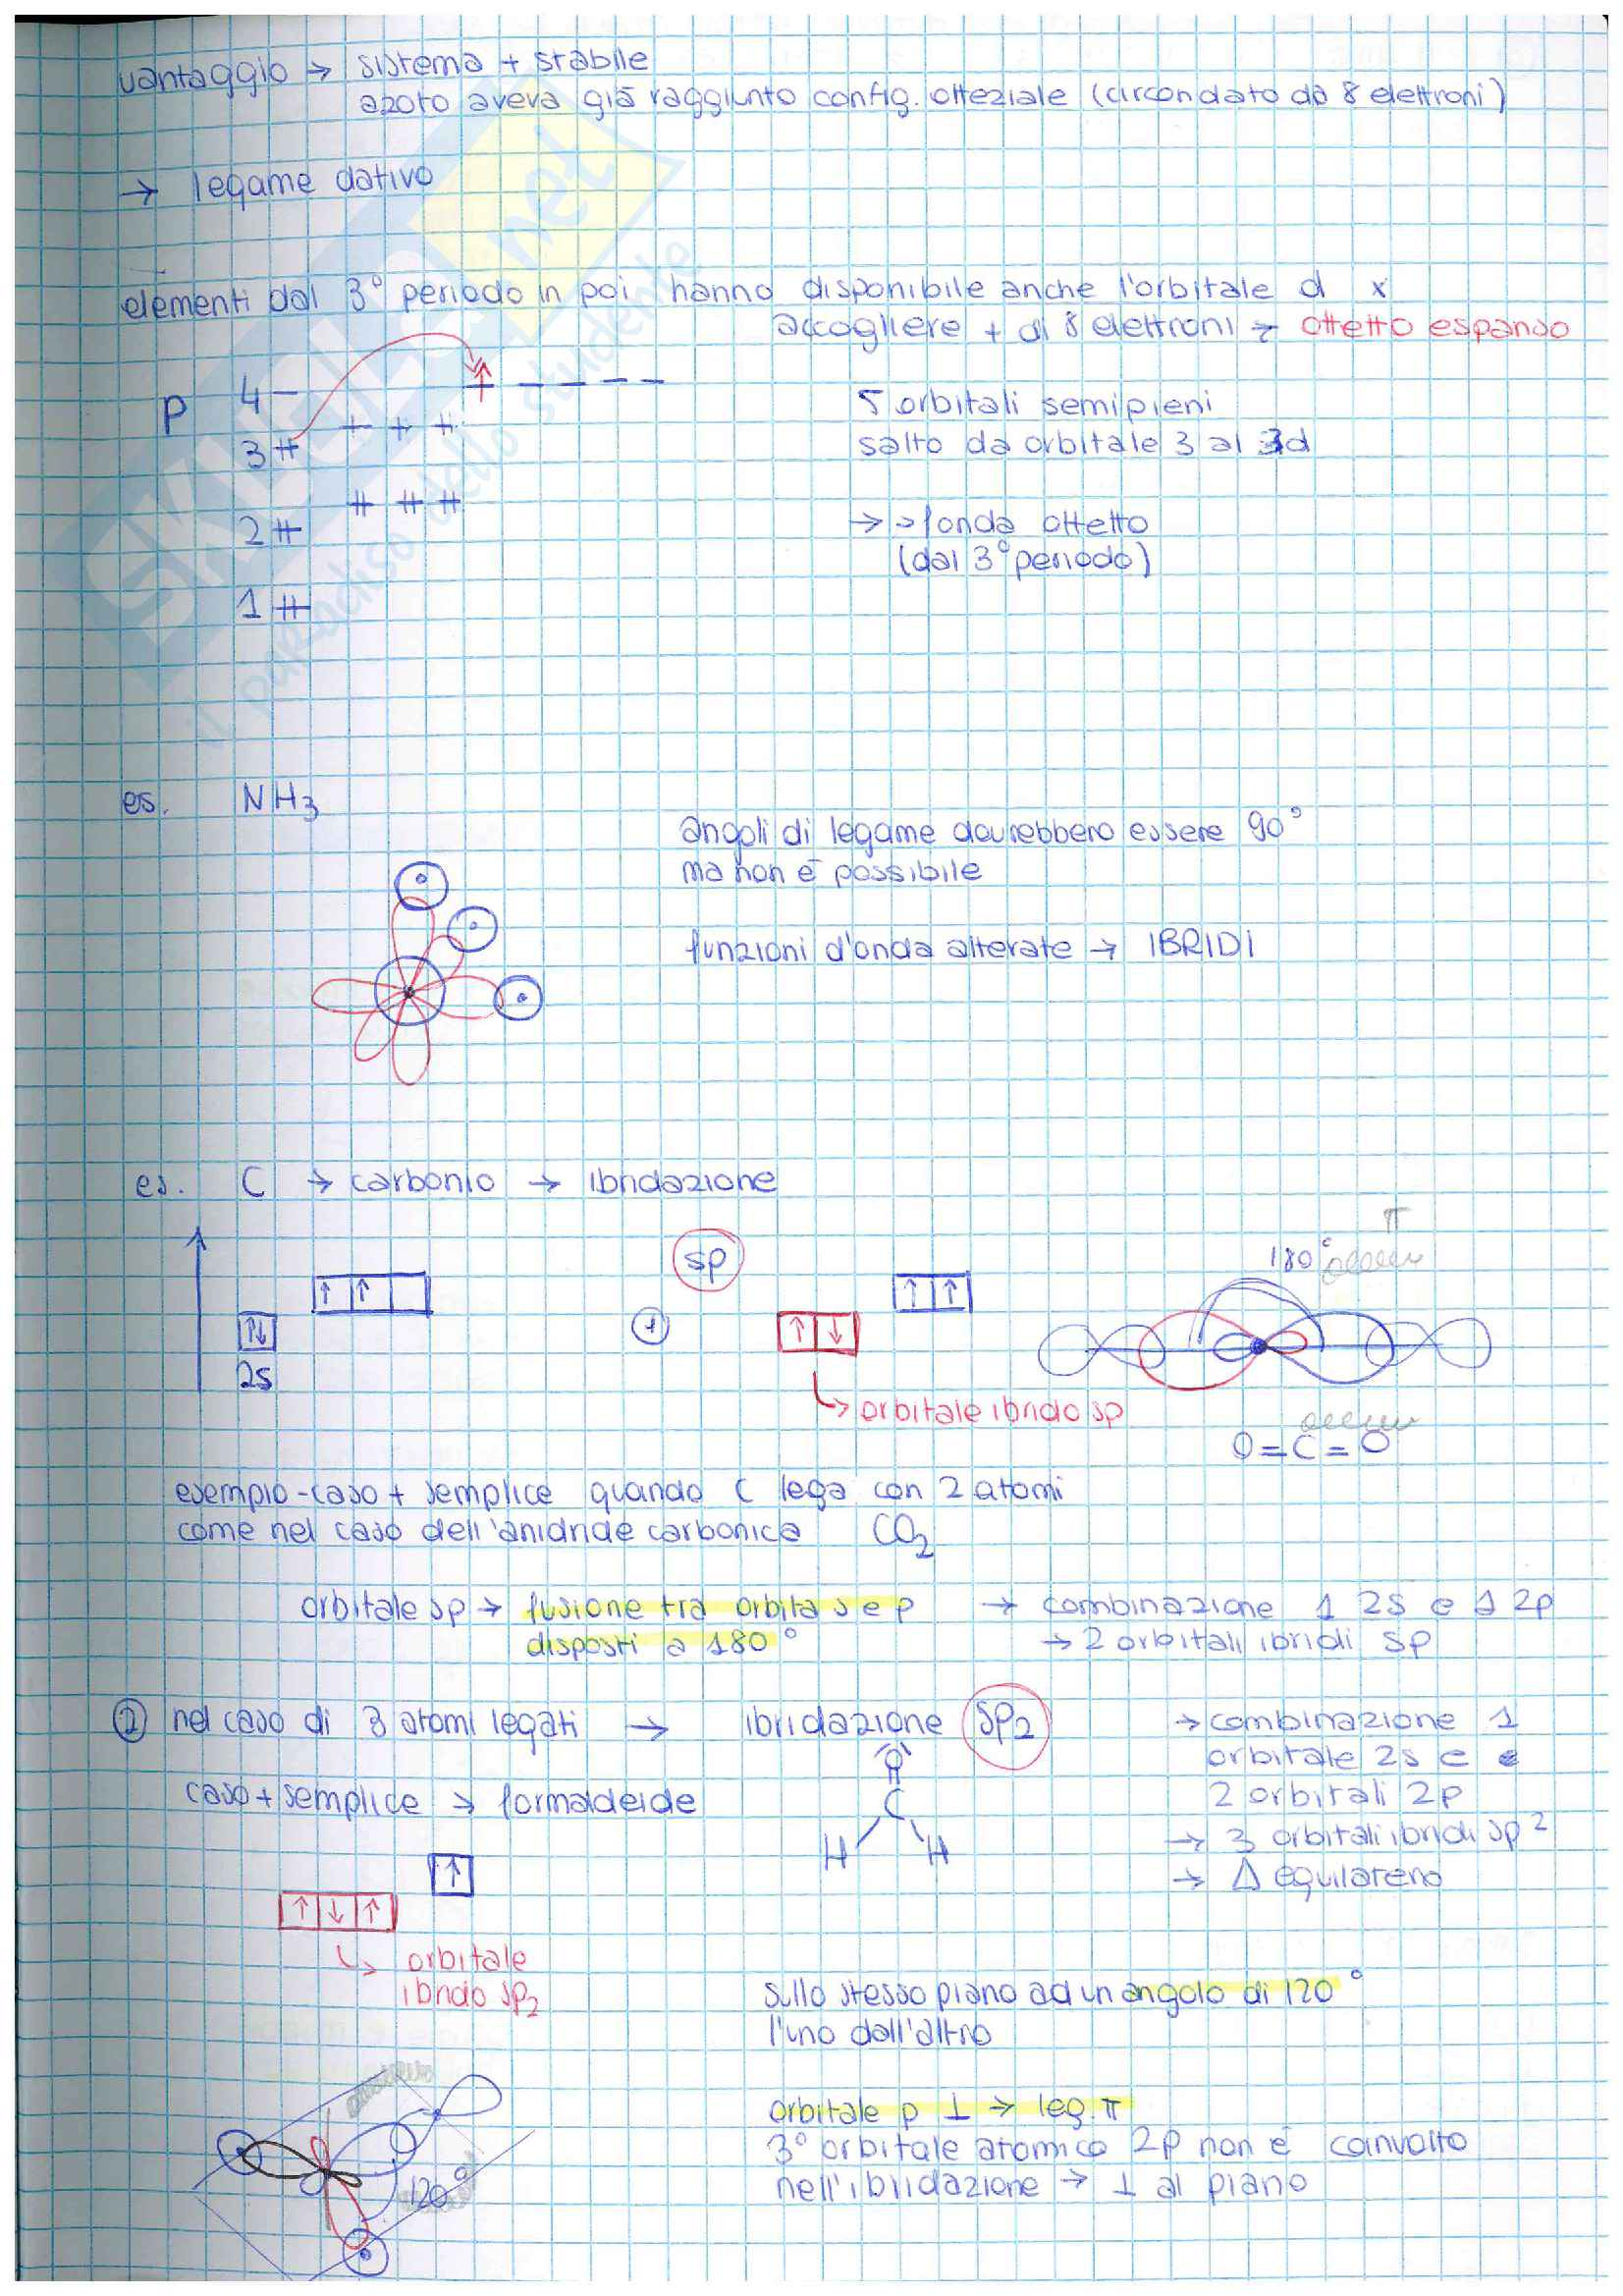 vantaggio → sistema + stabile
azoto aveva già raggiunto config. otteziale (circondato da 8 elettroni)
→ legame dativo
elementi dal 3° periodo in poi hanno disponibile anche l'orbitale d x
accogliere + di 8 elettroni → ottetto espanso
P 4
3
2
1
5 orbitali semipieni
salto da orbitale 3 al 3d
→ sfonda ottetto
(dal 3° periodo)
es. NH3
angoli di legame dovrebbero essere 90°
ma non è possibile
funzioni d'onda alterate → IBRIDI
es. C → carbonio → ibridazione
↑ ↑
↑↓
2s
sp
1
↑ ↓
↑ ↑
→ orbitale ibrido sp
π
180°
O=C=O
esempio-caso + semplice quando C lega con 2 atomi
come nel caso dell'anidride carbonica CO2
orbitale sp → fusione tra orbita s e p
disposti a 180°
→ combinazione 1 2s e 1 2p
→ 2 orbitali ibridi sp
② nel caso di 3 atomi legati → ibridazione sp2
caso + semplice → formaldeide
O
C
H H
→ combinazione 1
orbitale 2s e
2 orbitali 2p
→ 3 orbitali ibridi sp2
→ Δ equilatero
↑
↑ ↓ ↑
→ orbitale
ibrido sp2
sullo stesso piano ad un angolo di 120°
l'uno dall'altro
orbitale p ⊥ → leg. π
3° orbitale atomico 2p non è coinvolto
nell'ibridazione → ⊥ al piano
120°
SKUOLA.net
il paradiso dello studente